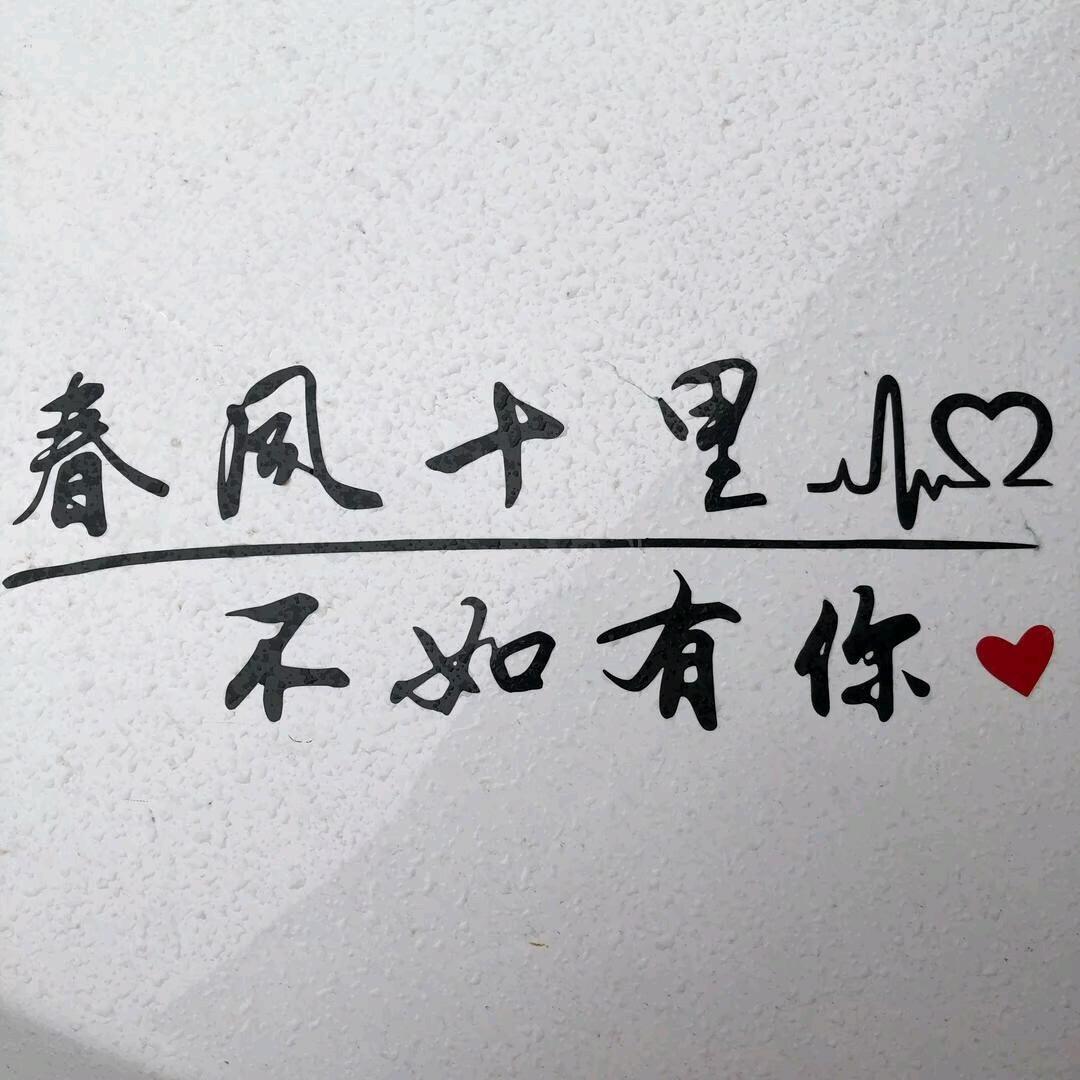 春风十里
不如有你